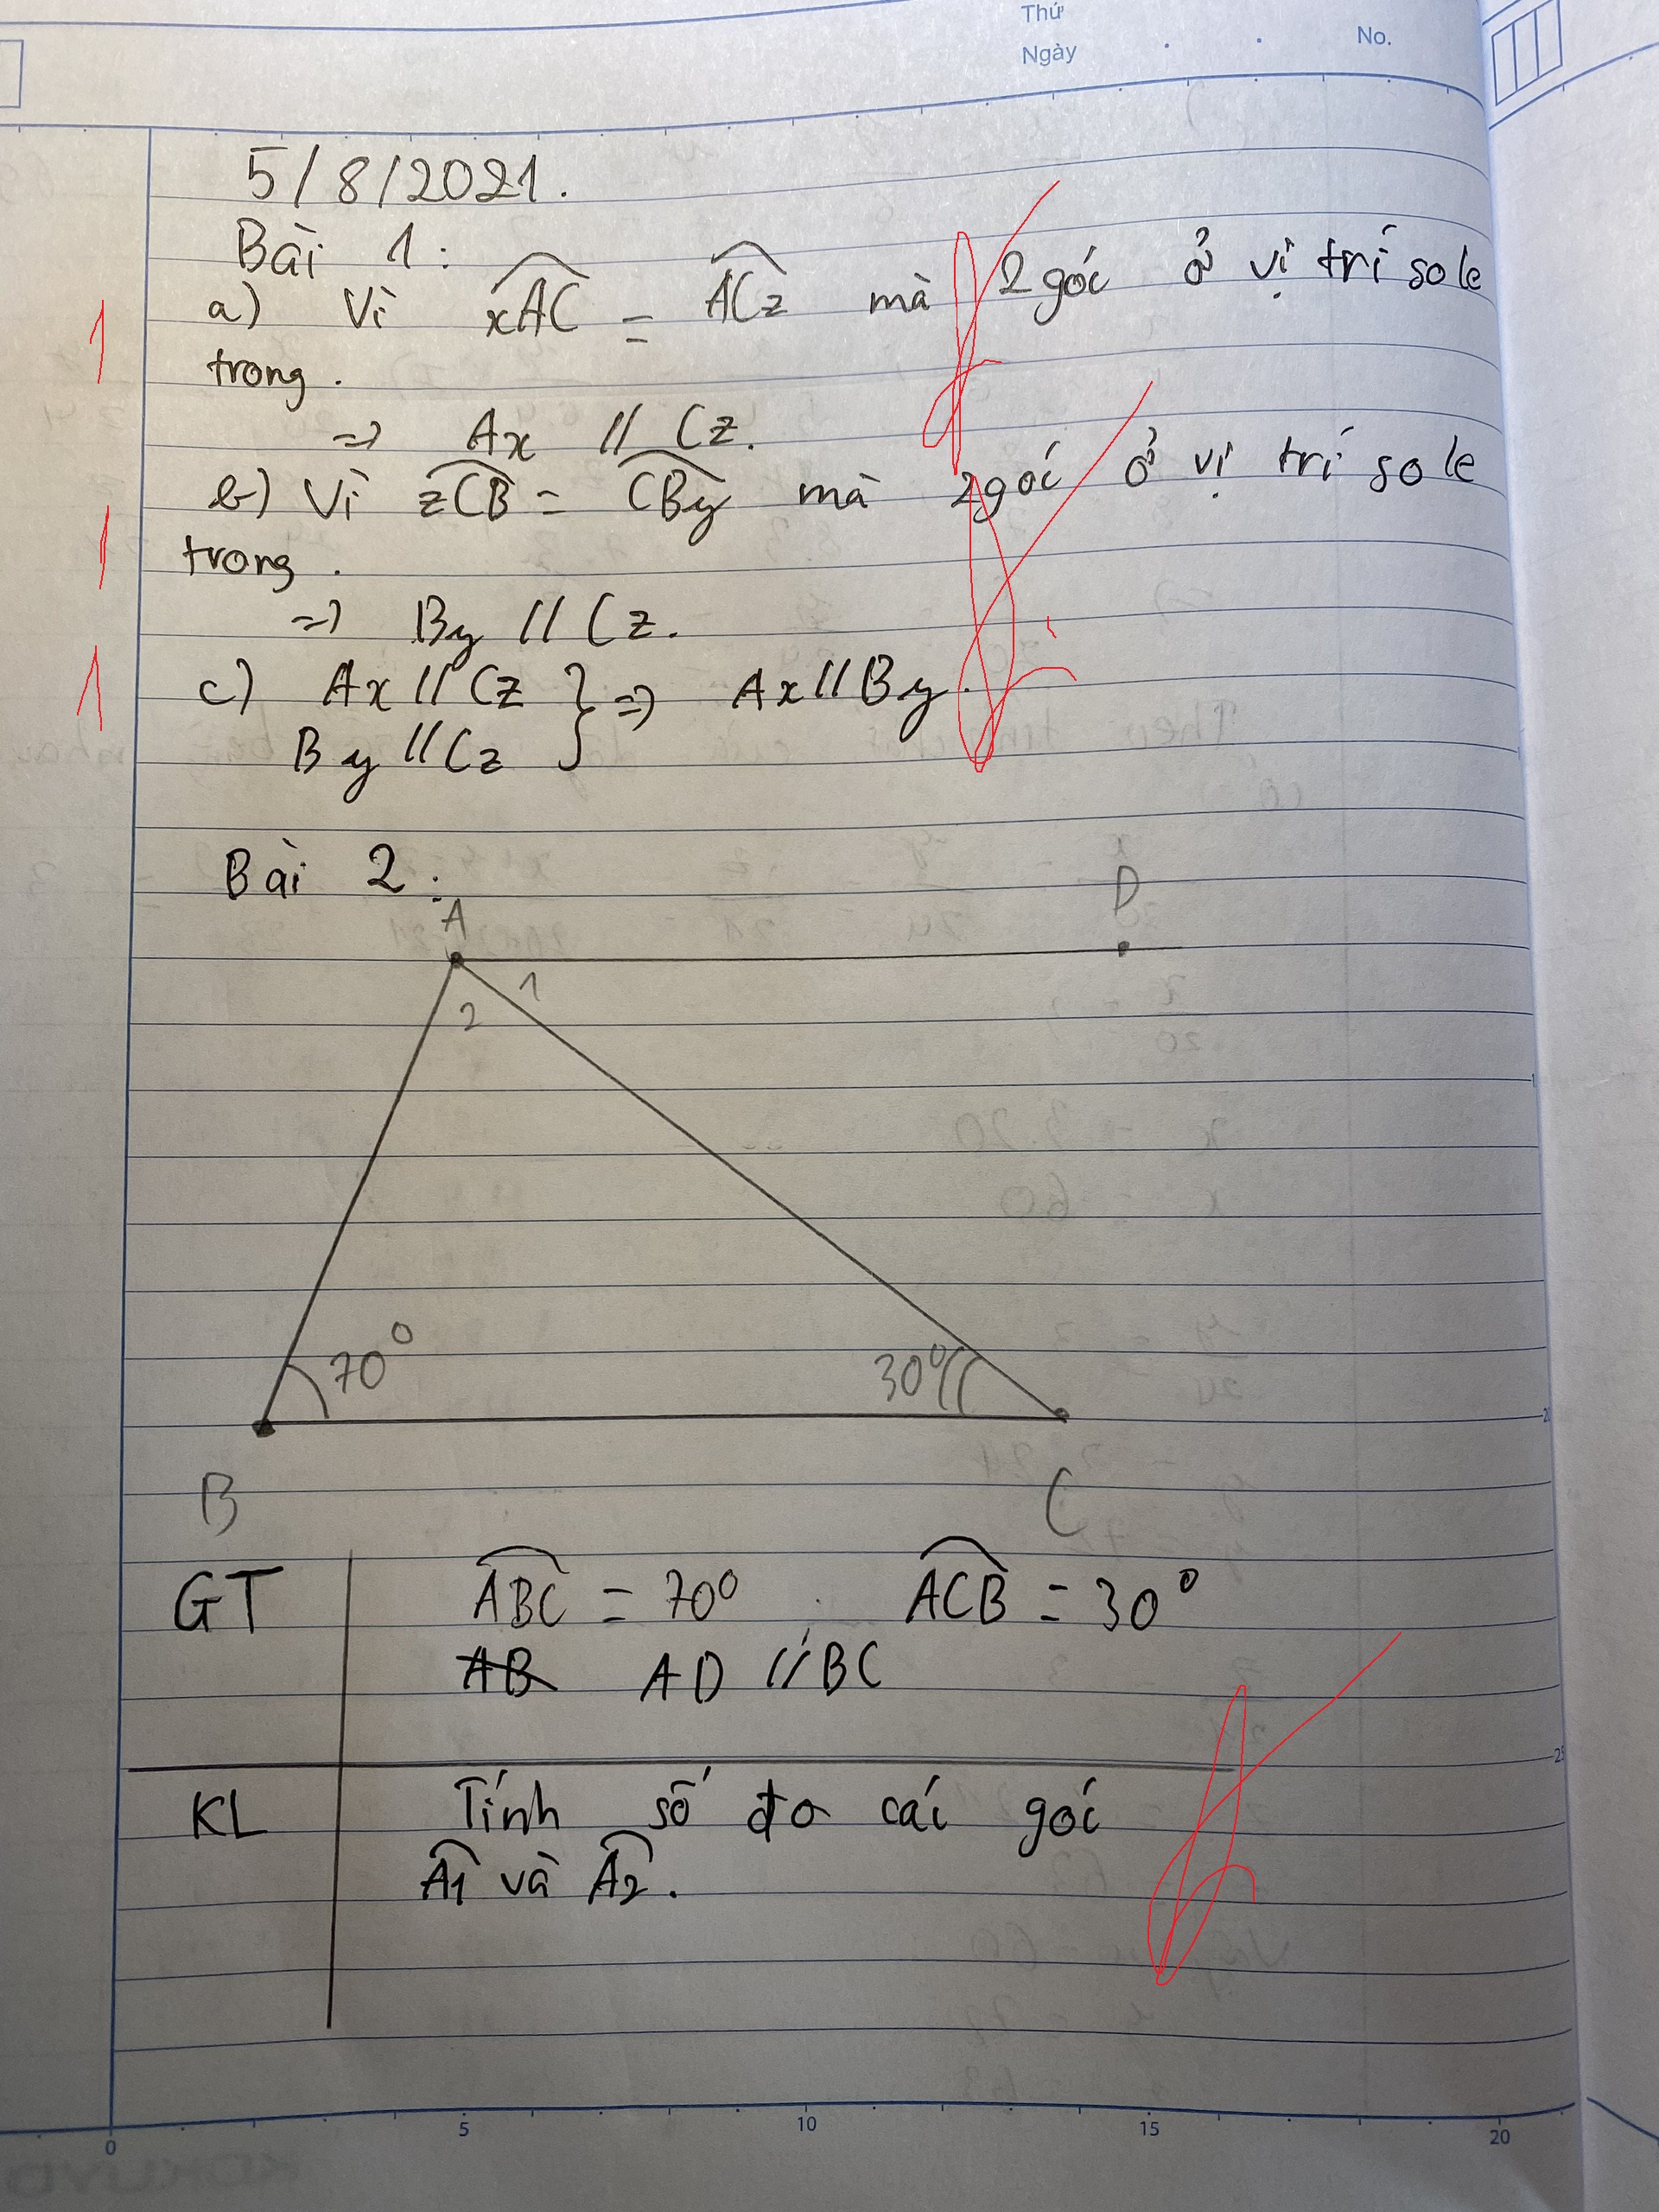 Thứ
Ngày . . No.
5/8/2021.
Bài 1:
a) Vì xAC = ACz mà 2 góc ở vị trí so le
1
trong.
=> Ax // Cz.
b) Vì zCB = CBy mà 2 góc ở vị trí so le
1
trong.
=> By // Cz.
c) Ax // Cz } => Ax // By.
1
By // Cz
Bài 2:
A
D
1
2
70°
30°
B
C
GT
ABC = 70° ACB = 30°
AB AD // BC
KL
Tính số đo các góc
A1 và A2.
0 5 10 15 20
20
25